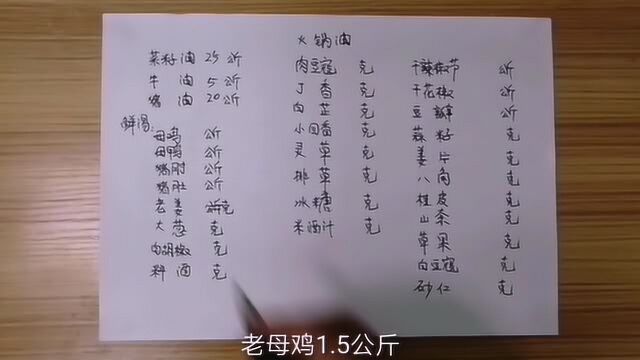 火锅油
菜籽油 25 公斤
牛油 5 公斤
猪油 20 公斤
鲜汤:
母鸡 公斤
母鸭 公斤
猪肘 公斤
猪肚 公斤
老姜 克
大葱 克
白胡椒 克
料酒 克
肉豆寇 克
丁香 克
白芷 克
小回香 克
灵草 克
排草 克
冰糖 克
米酒汁 克
干辣椒节 公斤
干花椒 公斤
豆瓣 公斤
蒜籽 克
姜片 克
八角 克
桂皮 克
山柰 克
草果 克
白豆寇 克
砂仁 克
老母鸡1.5公斤